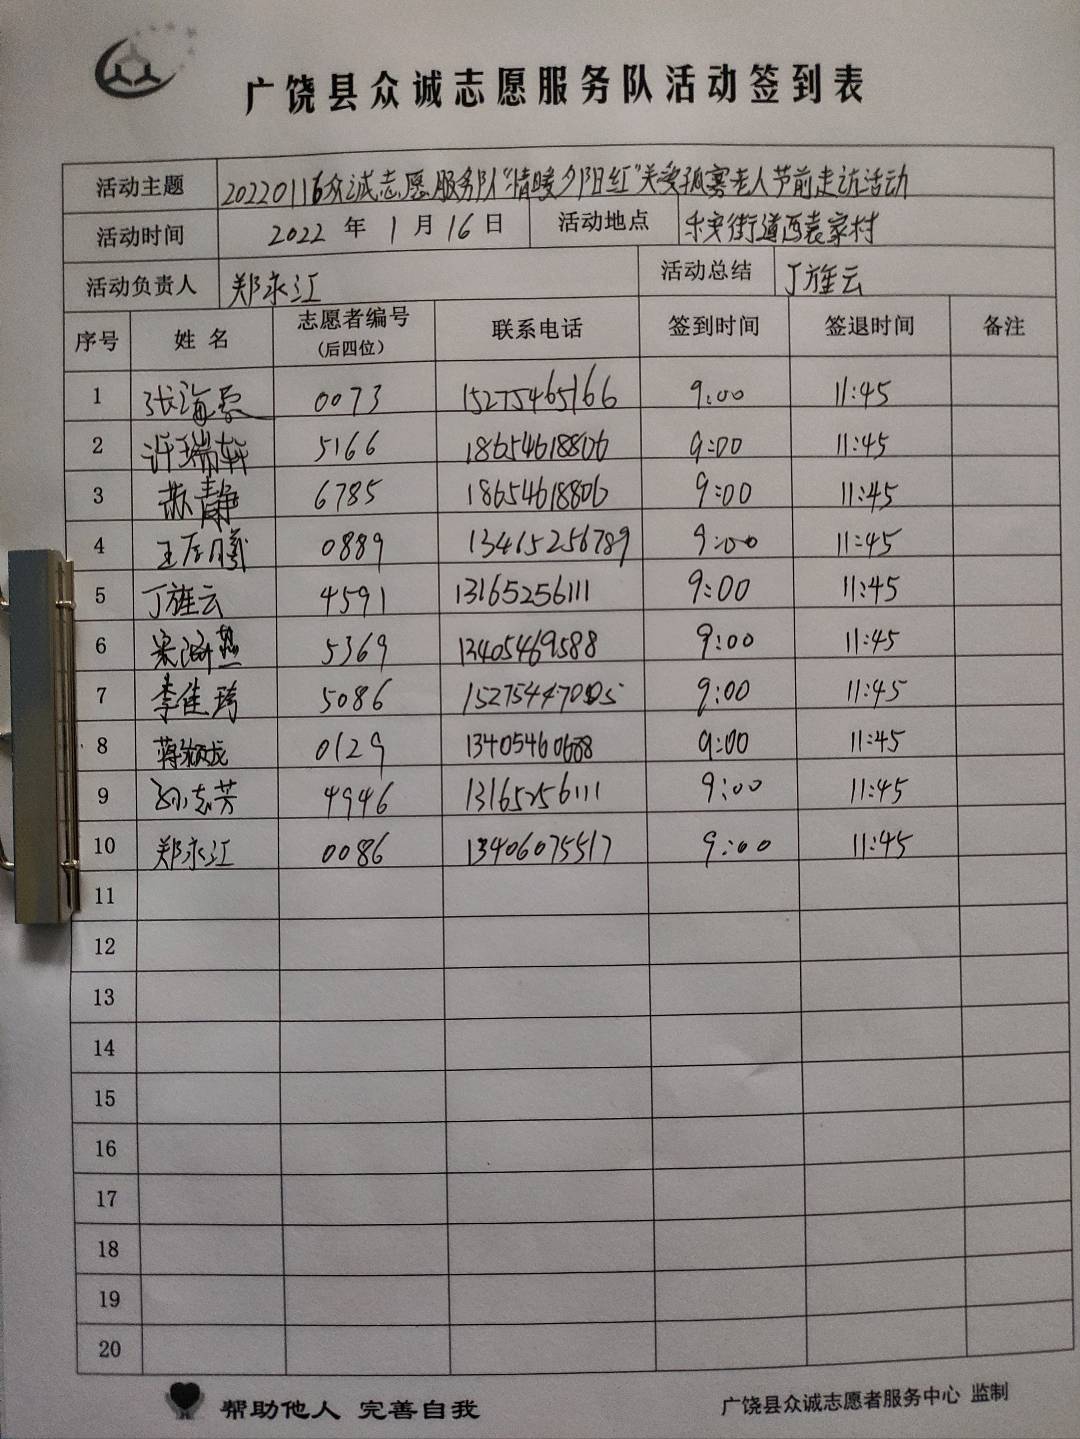 广饶县众诚志愿服务队活动签到表
活动主题 20220116众诚志愿服务队“情暖夕阳红”关爱孤寡老人节前走访活动
活动时间 2022 年 1 月 16 日 活动地点 乐安街道西袁家村
活动负责人 郑永江 活动总结 丁旌云
序号 姓名 志愿者编号（后四位） 联系电话 签到时间 签退时间 备注
1 0073 15275465166 9:00 11:45
2 许瑞轩 5166 18654618806 9:00 11:45
3 苏静 6785 18654618806 9:00 11:45
4 0889 13415256789 9:00 11:45
5 丁旌云 4591 13165256111 9:00 11:45
6 5369 13405469588 9:00 11:45
7 李佳琦 5086 9:00 11:45
8 0129 13405460688 9:00 11:45
9 孙志芳 4946 13165256111 9:00 11:45
10 郑永江 0086 13406075517 9:00 11:45
11
12
13
14
15
16
17
18
19
20
帮助他人 完善自我
广饶县众诚志愿者服务中心 监制